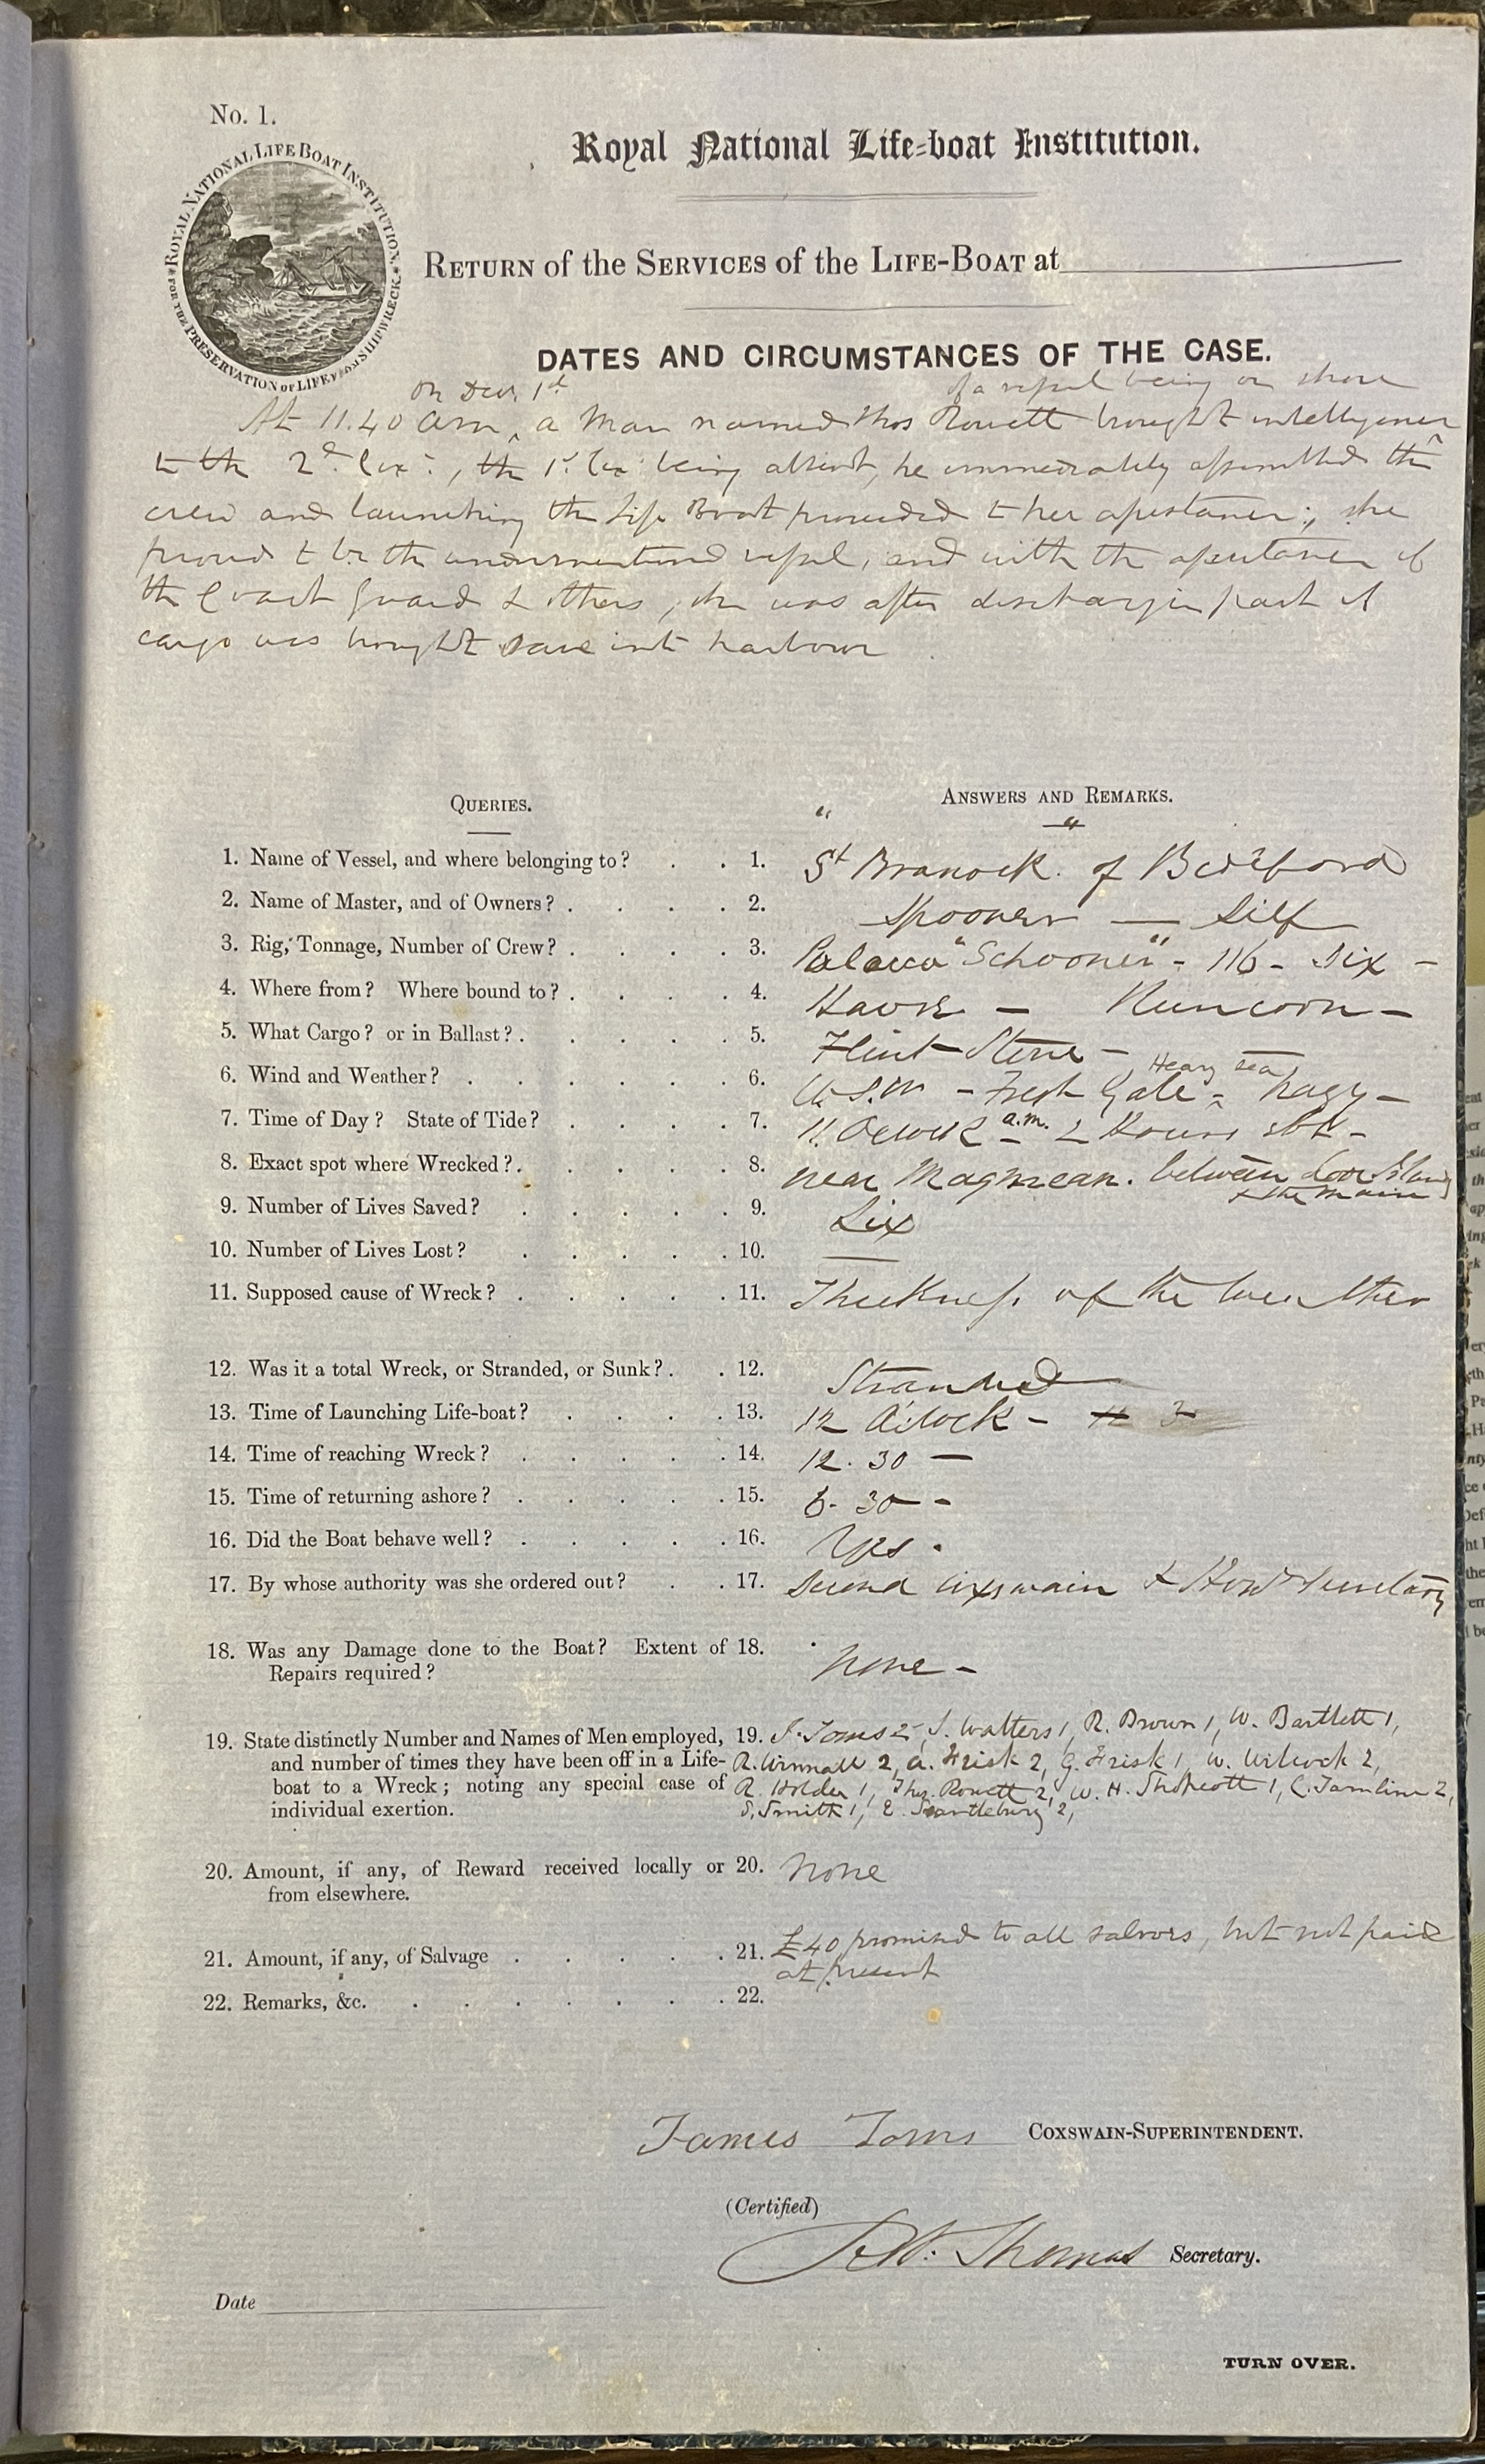 No. 1.
ROYAL NATIONAL LIFE BOAT INSTITUTION.
FOR THE PRESERVATION OF LIFE FROM SHIPWRECK.
Royal National Life-boat Institution.
RETURN of the SERVICES of the LIFE-BOAT at
DATES AND CIRCUMSTANCES OF THE CASE.
on Decr. 1st of a vessel being on shore
At 11.40 am, a Man named Thos Rowett brought intelligence
to the 2d Cox:, the 1st Cox: being absent, he immediately assembled the
crew and launching the Life Boat proceeded to her assistance; she
proved to be the undermentioned vessel, and with the assistance of
the Coast Guard & others, she was after discharging part of
cargo was brought save into harbour
QUERIES. ANSWERS AND REMARKS.
" "
1. Name of Vessel, and where belonging to? 1. St Branock of Bideford
2. Name of Master, and of Owners? 2. Spooner — Self
3. Rig, Tonnage, Number of Crew? 3. Polacca "Schooner" - 116 - Six -
4. Where from? Where bound to? 4. Havre — Runcorn —
5. What Cargo? or in Ballast? 5. Flint Stone -
6. Wind and Weather? 6. W.S.W - Fresh Gale - Heavy sea hazy -
7. Time of Day? State of Tide? 7. 11. Oclock a.m. - 2 Hours ebb -
8. Exact spot where Wrecked? 8. near Magmean. between Looe Island
& the main
9. Number of Lives Saved? 9. Six
10. Number of Lives Lost? 10. —
11. Supposed cause of Wreck? 11. Thickness of the Weather
12. Was it a total Wreck, or Stranded, or Sunk? 12. Stranded
13. Time of Launching Life-boat? 13. 12 O'clock -
14. Time of reaching Wreck? 14. 12. 30 —
15. Time of returning ashore? 15. 6- 30 -
16. Did the Boat behave well? 16. Yes.
17. By whose authority was she ordered out? 17. Second Coxswain & Hond Secretary
18. Was any Damage done to the Boat? Extent of 18. None -
Repairs required?
19. State distinctly Number and Names of Men employed, 19. J. Toms 2, J. Walters 1, R. Brown 1, W. Bartlett 1,
and number of times they have been off in a Life- R. Winnall 2, A. Frisk 2, G. Frisk 1, W. Wilcock 2,
boat to a Wreck; noting any special case of R. Holder 1, Thos. Rowett 2, W. H. Shapcott 1, C. Tamlin 2,
individual exertion. S. Smith 1, E. Scantlebury 2,
20. Amount, if any, of Reward received locally or 20. None
from elsewhere.
21. Amount, if any, of Salvage 21. £40 promised to all salvors, but not paid
at present
22. Remarks, &c. 22.
James Toms COXSWAIN-SUPERINTENDENT.
(Certified)
Thomas Secretary.
Date
TURN OVER.